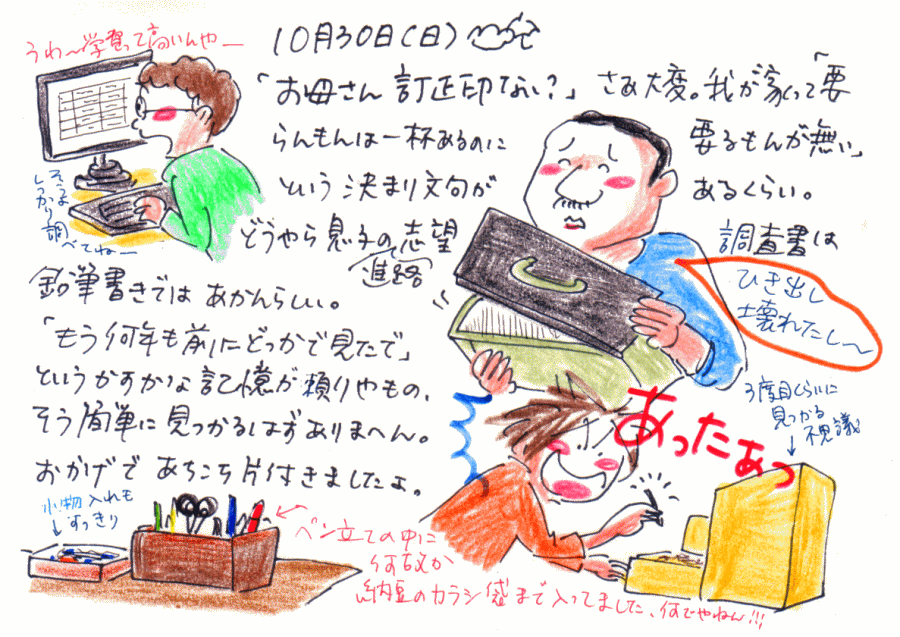 10月30日(日)
うわ〜学習って高いんやー
「お母さん 訂正印てない?」 さあ大変。我が家って「要
らんもんは一杯あるのに 要るもんが無い」
という決まり文句が あるくらい。
どうやら息子の志望 調査書は
進路
鉛筆書きでは あかんらしい。
「もう何年も前にどっかで見たで」
というかすかな記憶が頼りやもの、
そう簡単に見つかるはずありまへん。
おかげで あちこち片付きましたよ。
そうよ
しっかり
調べてねー
ひき出し
壊れたし〜
あったぁっ
3度目くらいに
見つかる
不思議
小物入れも
すっきり
ペン立ての中に
何故か
納豆のカラシ袋まで入ってました、何でやねん!!!